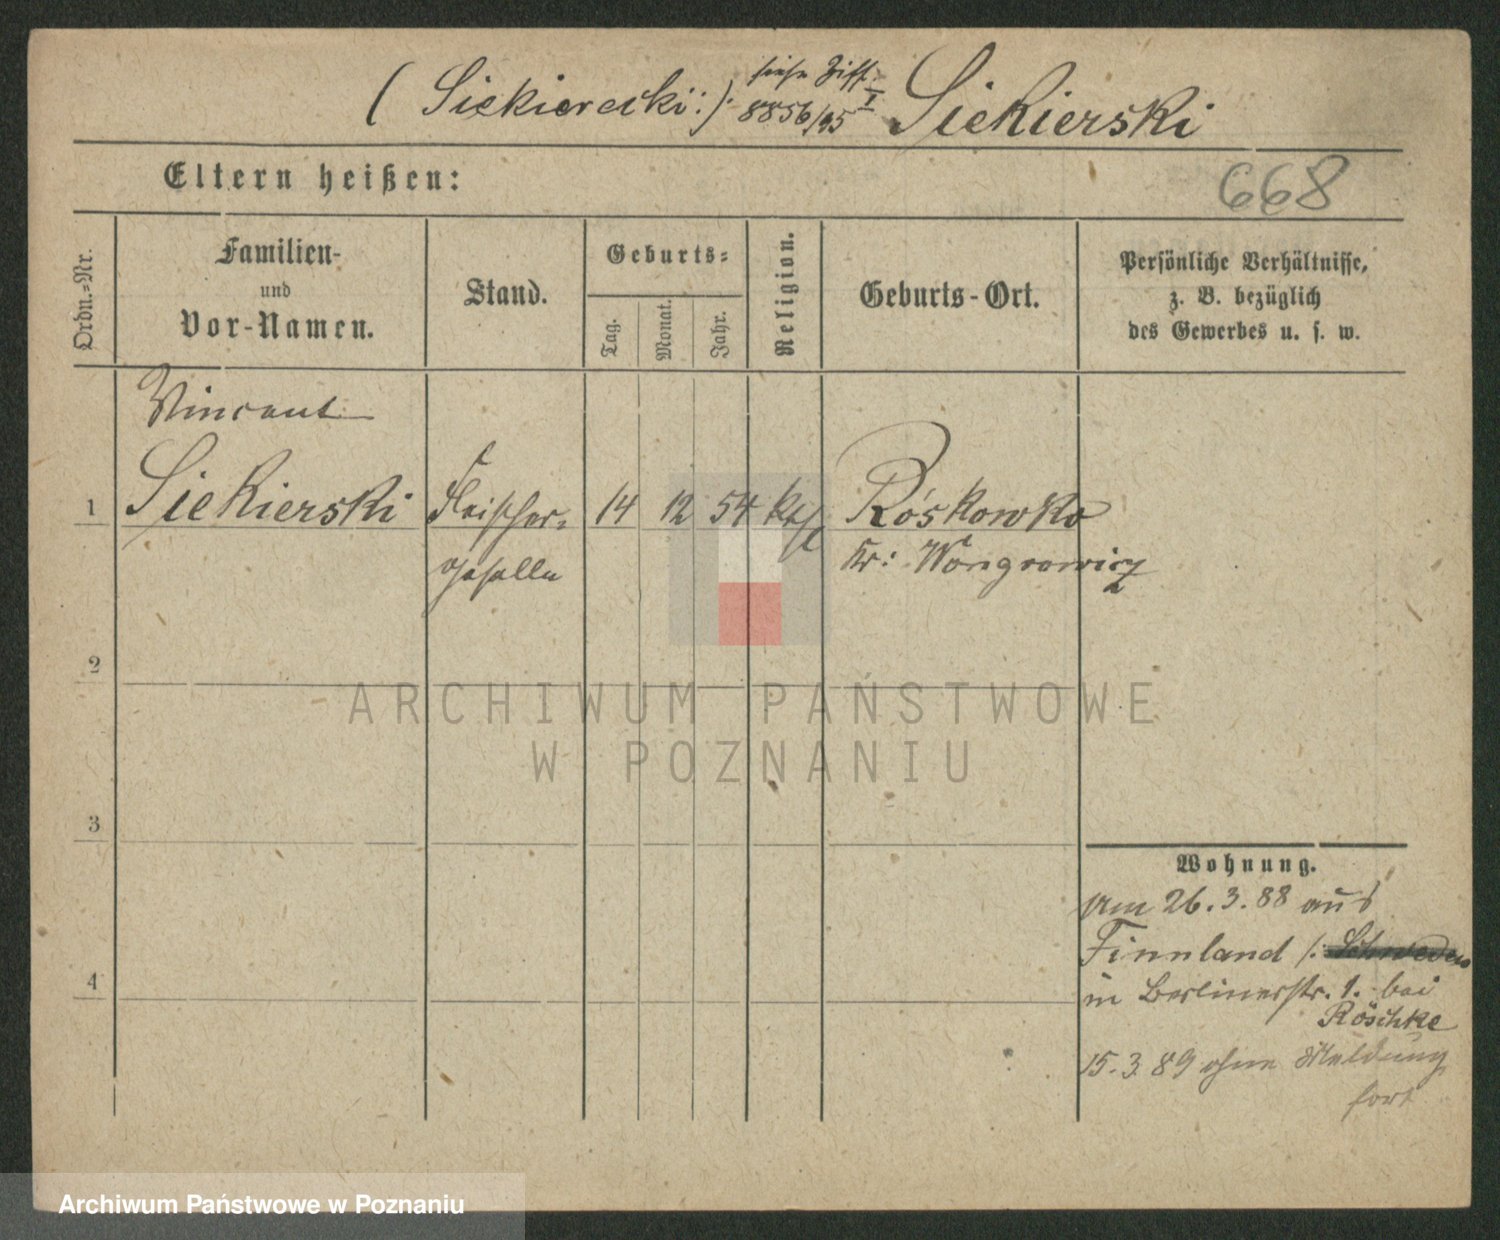 (Siekierecki:) siehe Ziff. I 8856/95 Siekierski
Eltern heißen:
668
Ordn.-Nr.
Familien-
und
Vor-Namen.
Stand.
Geburts-
Tag.
Monat.
Jahr.
Religion.
Geburts-Ort.
Persönliche Verhältnisse,
z. B. bezüglich
des Gewerbes u. s. w.
Vincent
1 Siekierski Fleischer- 14 12 54 kth Róskowko
geselle Kr: Wongrowicz
2
3
4
Wohnung.
Am 26.3.88 aus
Finnland /: Schweden
in Berlinerstr. 1. bei
Röschke
15.3.89 ohne Meldung
fort
ARCHIWUM PAŃSTWOWE
W POZNANIU
Archiwum Państwowe w Poznaniu